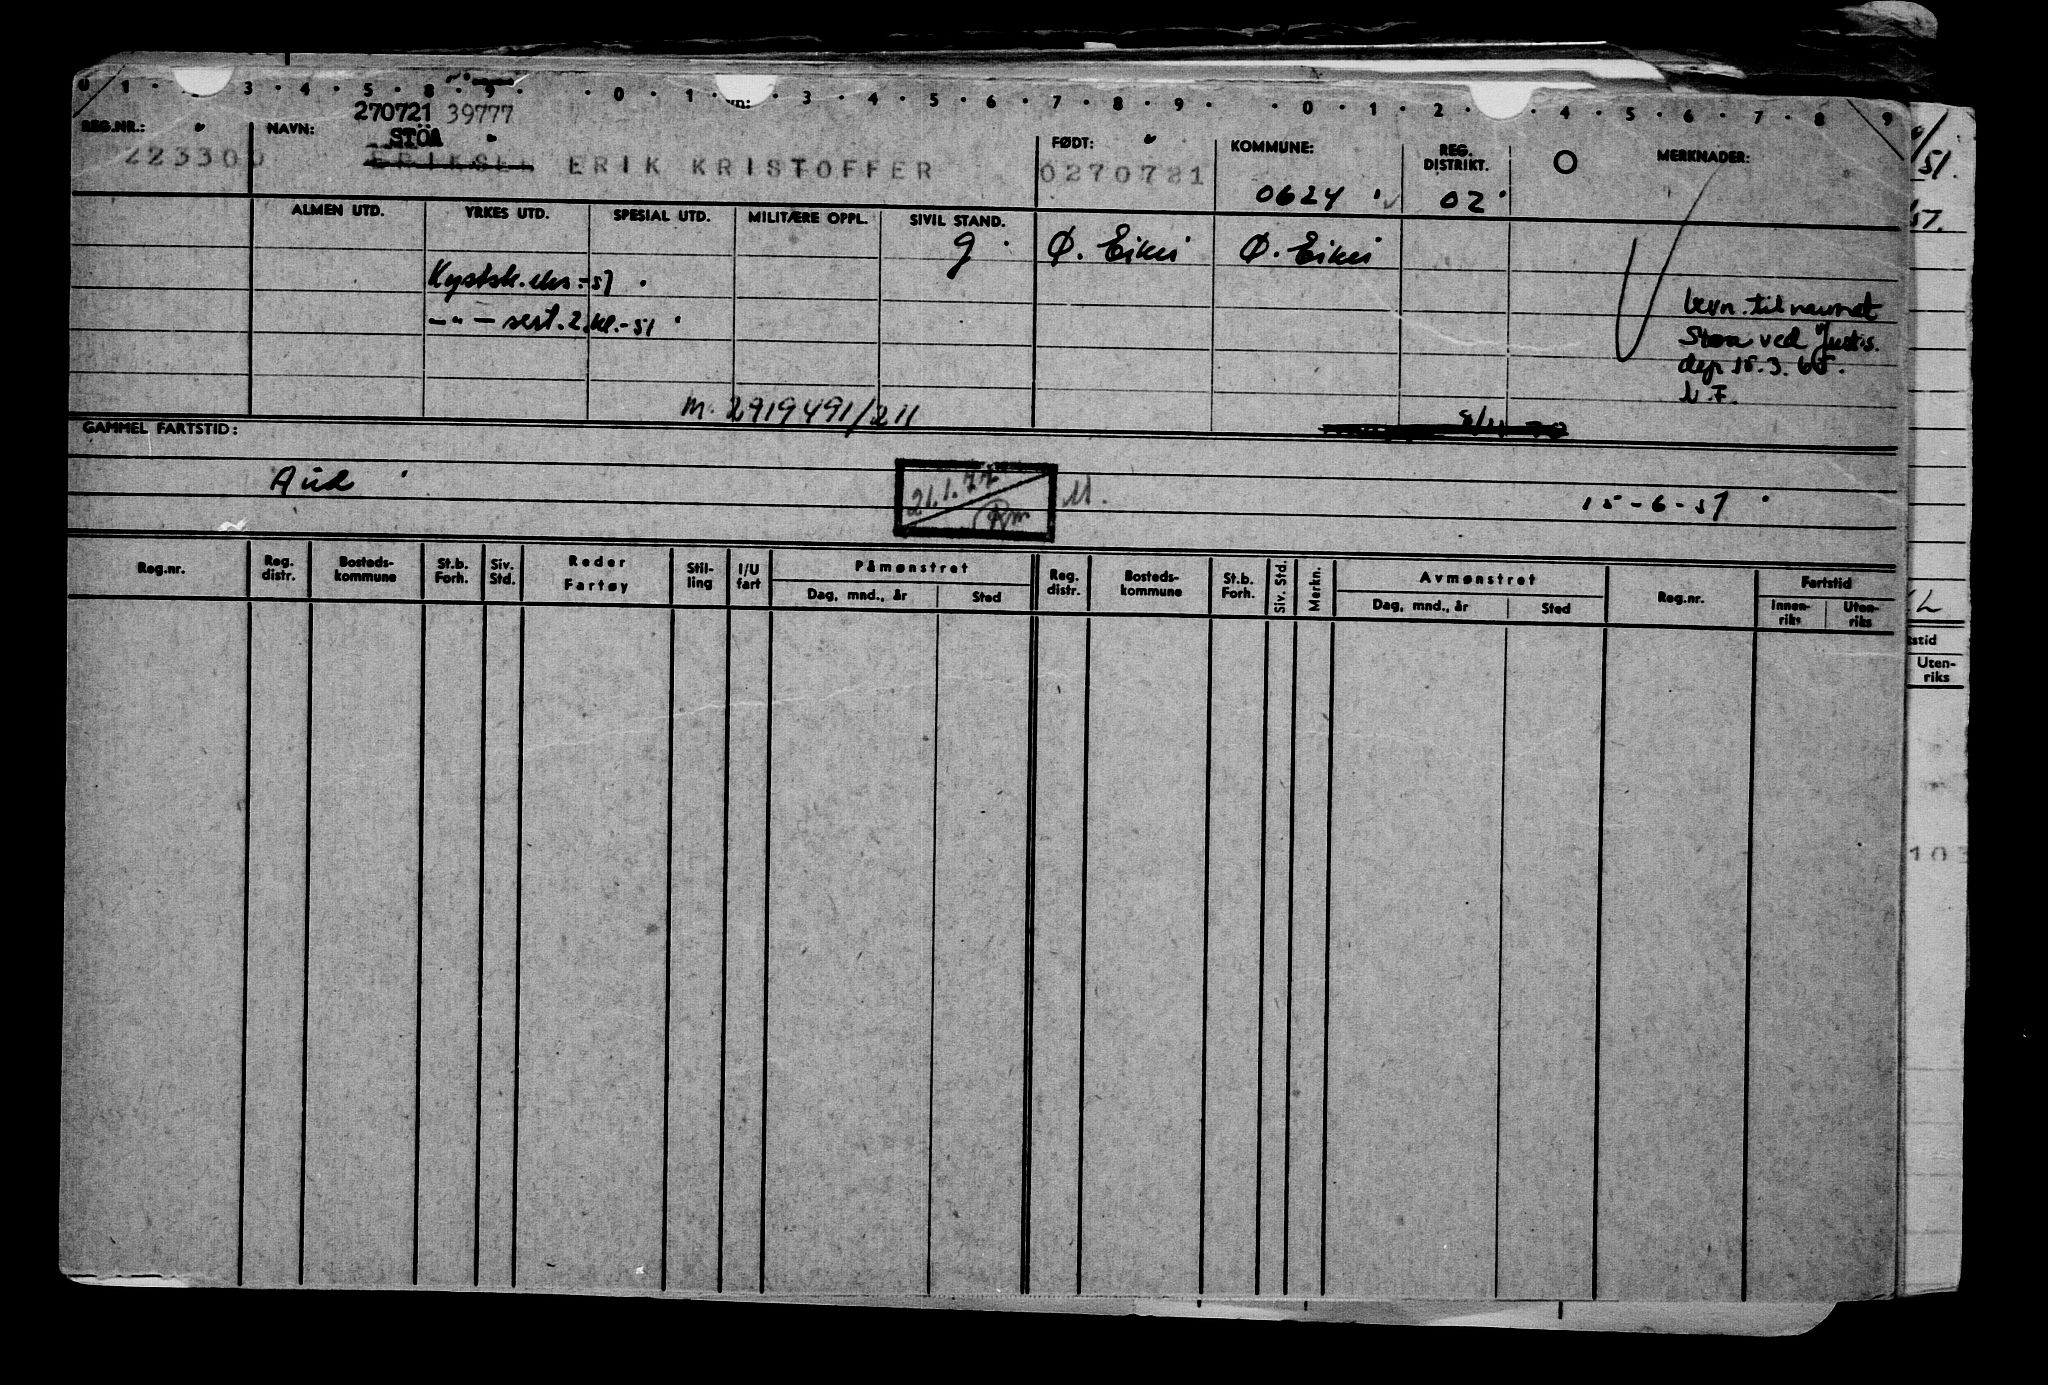 0 1 3 4 5 8 9 0 1 3 4 5 6 7 8 9 0 1 2 4 5 6 7 8 9
270721 39777
REG.NR.: NAVN: STÖA FØDT: KOMMUNE: REG. DISTRIKT. MERKNADER:
ERIK KRISTOFFER 0270721 0624 02
ALMEN UTD. YRKES UTD. SPESIAL UTD. MILITÆRE OPPL. SIVIL STAND.
g Ø. Eiker Ø. Eiker
Kystsk. eks. - 51
-"- sert. 2. kl. - 51
bevn. til navnet
Støa ved Justis.
dep 15.3.65.
M. 2919491/211
GAMMEL FARTSTID:
Aud 21.1.77 15-6-51
Reg.nr. Reg. distr. Bosteds- kommune St.b. Forh. Siv. Std. Reder Fartøy Stil- ling I/U fart Påmønstret Reg. distr. Bosteds- kommune St.b. Forh. Siv. Std. Merkn. Avmønstret Reg.nr. Fartstid
Dag, mnd., år Sted Dag, mnd., år Sted Innen- riks Uten- riks
51.
stid
Uten-
riks
10